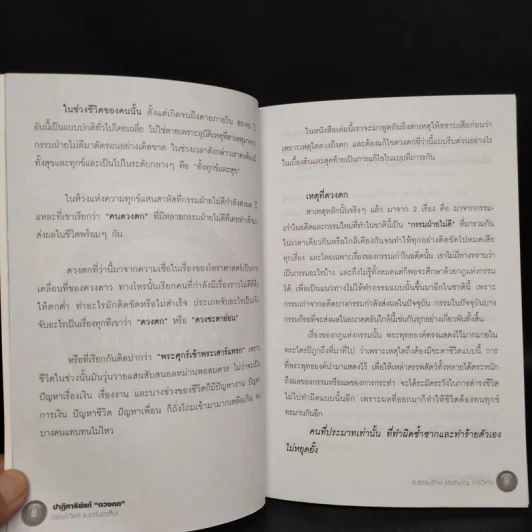 ในช่วงชีวิตของคนนั้น ตั้งแต่เกิดจนถึงตายภายใน 80-90 ปี
อันนี้เป็นแบบปกติทั่วไปโดยเฉลี่ย ไม่ใช่ตายเพราะอุบัติเหตุที่สาเหตุมาจาก
กรรมฝ่ายไม่ดีมาตัดรอนอย่างเด็ดขาด ในช่วงเวลาดังกล่าวเราจะต้อง
ทั้งสุขและทุกข์และเป็นไปในระดับกลางๆ คือ "ทั้งทุกข์และสุข"
ในห้วงแห่งความทุกข์แสนสาหัสที่กรรมฝ่ายไม่ดีกำลังส่งผล
แหละที่เขาเรียกว่า "คนดวงตก" ที่มีหลายกรรมฝ่ายไม่ดีที่เคยทำเข้ามา
ส่งผลในชีวิตพร้อมๆ กัน
ดวงตกที่ว่านี้มาจากความเชื่อในเรื่องของโหราศาสตร์เป็นการ
เคลื่อนที่ของดวงดาว ทางโหรนั้นเรียกคนที่กำลังมีเรื่องราวไม่ดีที่ทำ
ให้ตกต่ำ ทำอะไรมักติดขัดหรือไม่สำเร็จ ประเภทจับอะไรเป็นเจ๊ง
จับอะไรเป็นเรื่องทุกที่เขาว่า "ดวงตก" หรือ "ดวงชะตาอ่อน"
หรือที่เรียกกันติดปากว่า "พระศุกร์เข้าพระเสาร์แทรก" เพราะ
ชีวิตในช่วงนั้นมันวุ่นวายแสนสับสนอลหม่านพอสมควร ไม่ว่าจะเป็น
ปัญหาเรื่องเงิน เรื่องงาน และบางช่วงของชีวิตก็มีปัญหางาน ปัญหา
การเงิน ปัญหาชีวิต ปัญหาเพื่อน ก็ถั่งโถมเข้ามามากเหลือเกิน จน
บางคนแทบทนไม่ไหว
8
ปาฏิหาริย์แก้ "ดวงตก"
ในหนังสือเล่มนี้เราจะมาพูดกันถึงสาเหตุให้ทราบเสียก่อนว่า
เพราะเหตุใดดวงถึงตก และต้องแก้ไขดวงตกที่ว่านี้แบบรีบด่วนอย่างไร
ในเบื้องต้นและสุดท้ายเป็นการแก้ไขในแบบที่ถาวรกัน
เหตุที่ดวงตก
สาเหตุหลักนั้นจริงๆ แล้ว มาจาก 2 เรื่อง คือ มาจากกรรม-
เก่าในอดีตและกรรมใหม่ที่ทำในชาตินี้เป็น "กรรมฝ่ายไม่ดี" ที่มารวมกัน
ในเวลาเดียวกันหรือใกล้เคียงกันจนทำให้ทุกอย่างติดขัดไปหมดเสีย
ทุกเรื่อง และโดยเฉพาะเรื่องของกรรมเก่าในอดีตนั้น เราไม่มีทางทราบว่า
เป็นกรรมอะไรบ้าง และถึงไม่รู้ทั้งหมดแต่ก็พอจะศึกษาด้วยกฎแห่งกรรม
ได้ เพื่อเป็นแนวทางไม่ให้ทำกรรมแบบนั้นขึ้นมาอีกในชาตินี้ เพราะ
กรรมเก่าจากอดีตบางกรรมกำลังส่งผลในปัจจุบัน กรรมในปัจจุบันบาง
กรรมก็รอที่จะส่งผลในอนาคตอันใกล้นี้เช่นกันทุกอย่างเกี่ยวพันกันทั้งสิ้น
เรื่องของกฎแห่งกรรมนั้น พระพุทธองค์ทรงแสดงไว้มากมายใน
พระไตรปิฎกถึงที่มาที่ไป ว่าเพราะเหตุใดถึงต้องมีชะตาชีวิตแบบนี้ การ
ที่พระพุทธองค์นำมาแสดงไว้ เพื่อให้เหล่าสรรพสัตว์ทั้งหลายได้ตระหนัก
ถึงผลของกรรมหรือผลของการกระทำ จะได้ระมัดระวังในการดำรงชีวิต
ไม่ไปทำผิดแบบนั้นอีก เพราะผลที่ออกมาก็ทำให้ชีวิตต้องทนทุกข์
ทรมานกันอีก
คนที่ประมาทเท่านั้น ที่ทำผิดซ้ำซากและทำร้ายตัวเอง
ไม่หยุดยั้ง
9